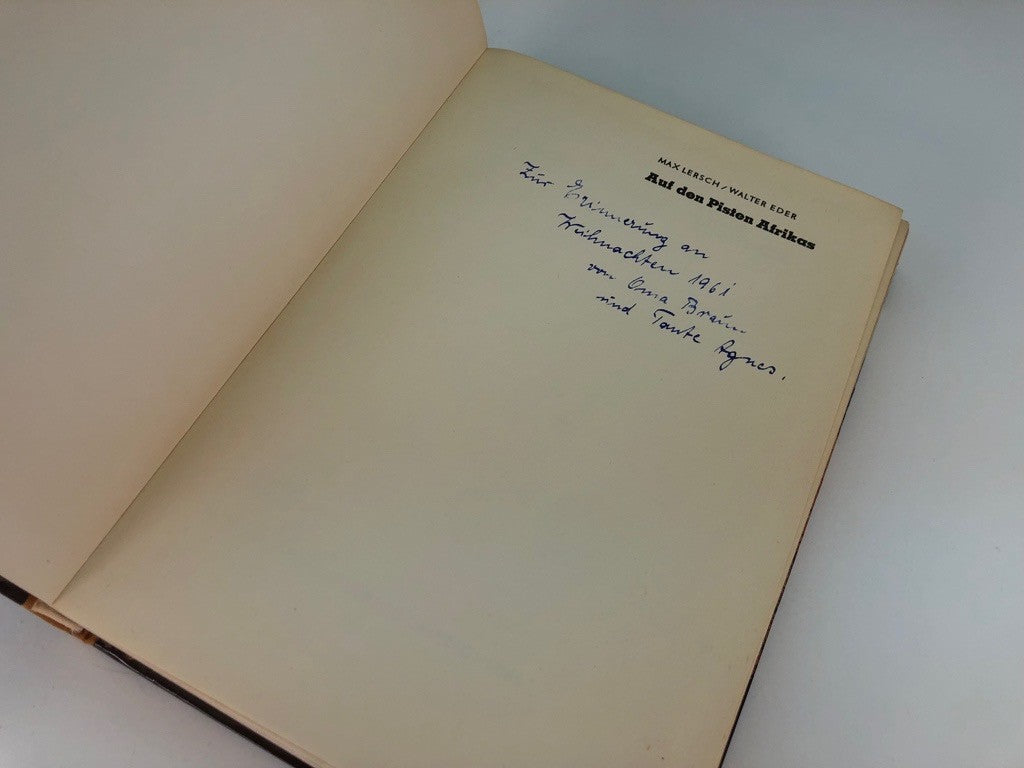 MAX LERSCH / WALTER EDER
Auf den Pisten Afrikas
Zur Erinnerung an
Weihnachten 1961
von Oma Braun
und Tante Agnes.